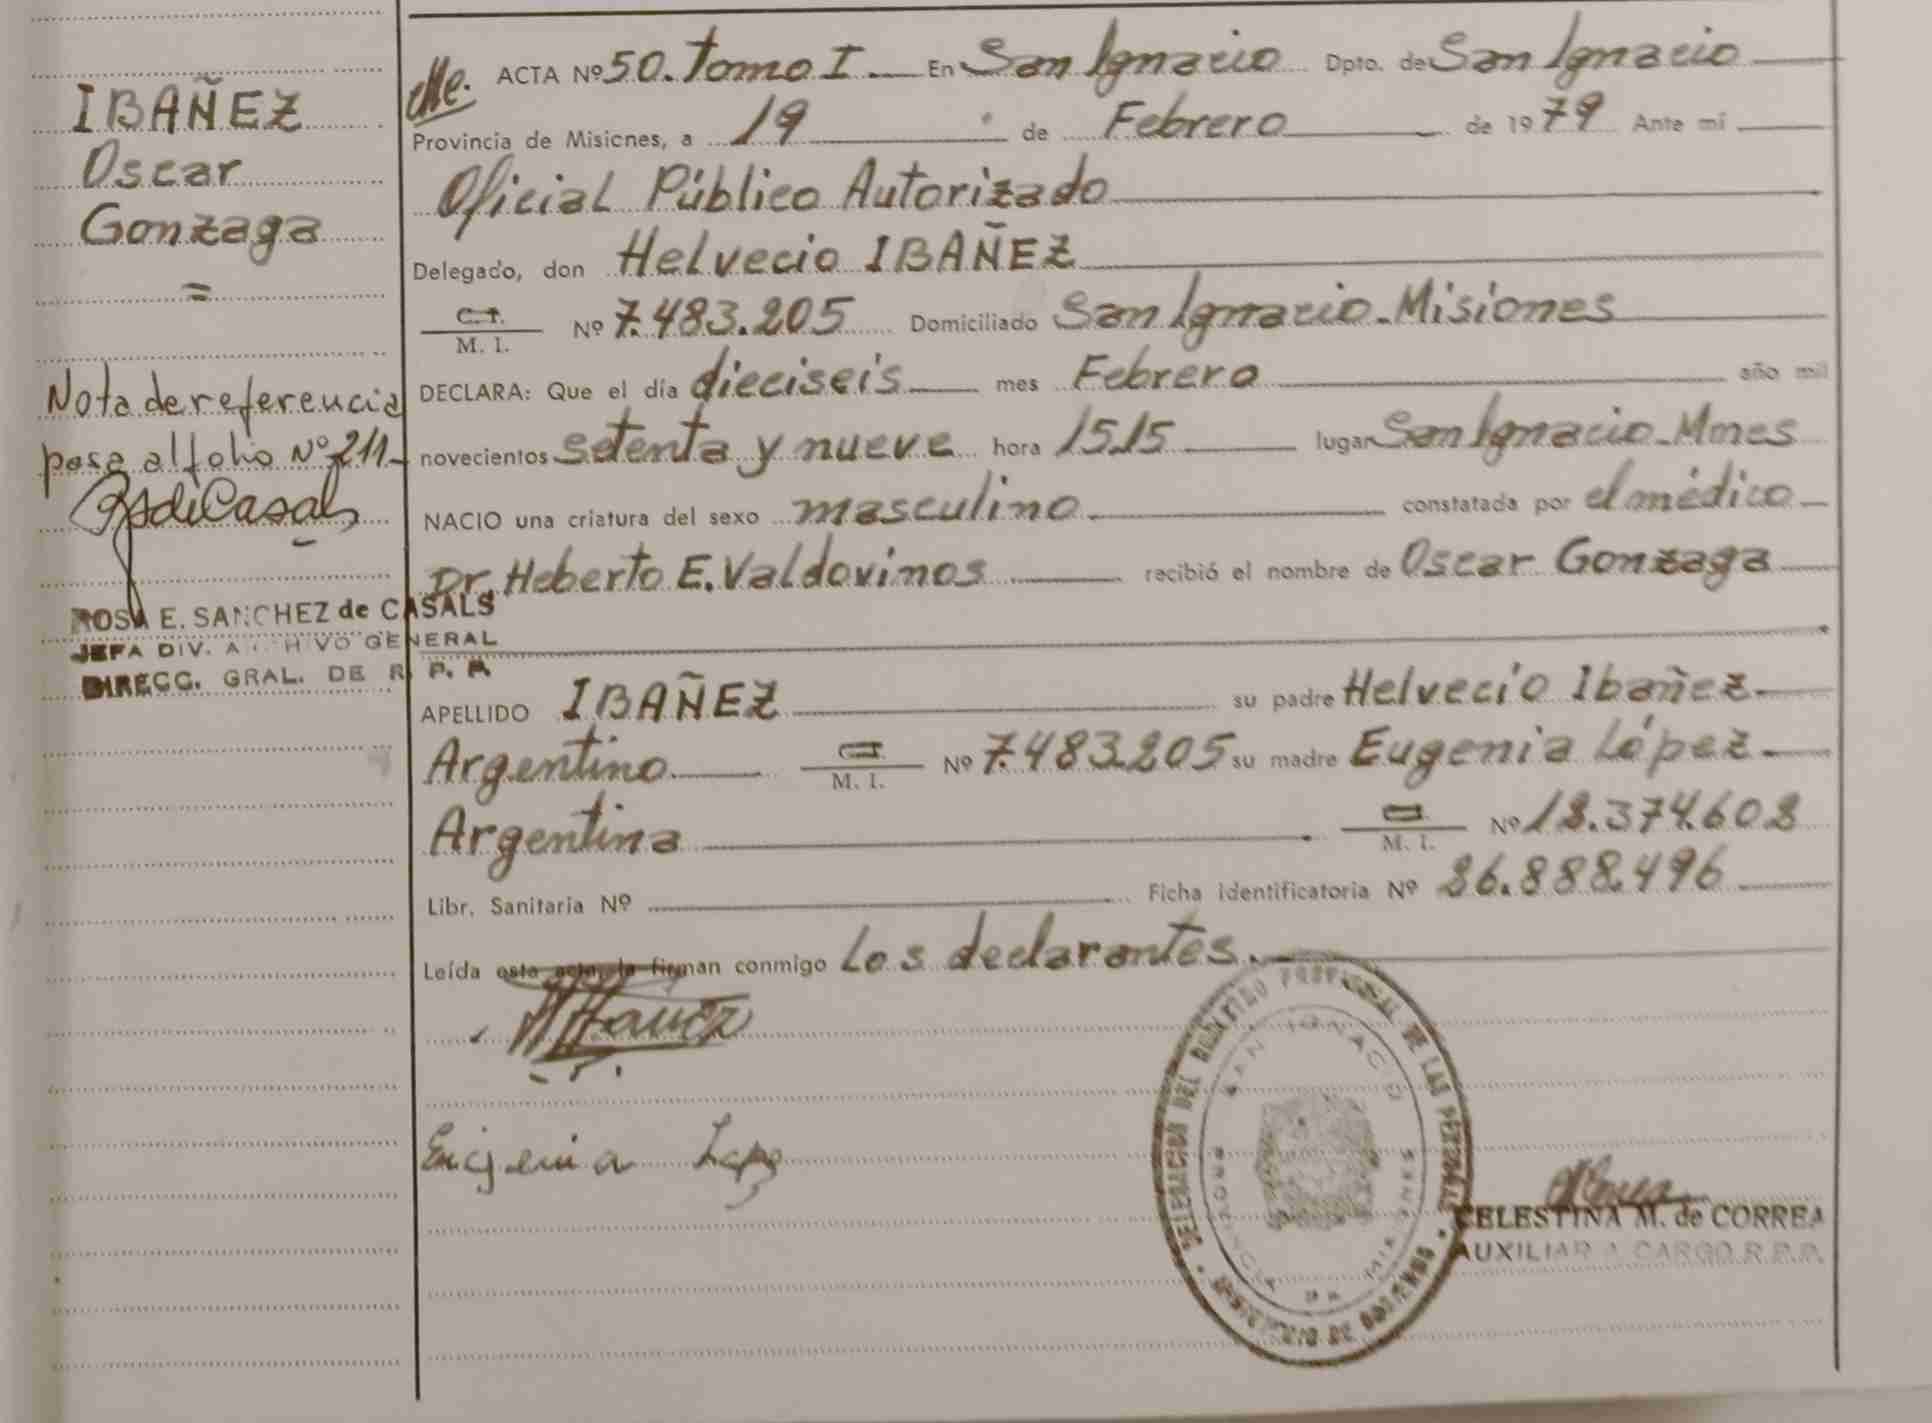 IBAÑEZ
Oscar
Gonzaga
=
Nota de referencia
pasa al folio Nº 211_
ROSA E. SANCHEZ de CASALS
JEFA DIV. ARCHIVO GENERAL
DIRECC. GRAL. DE R. P. P.
ACTA Nº 50. Tomo I. En San Ignacio Dpto. de San Ignacio
Provincia de Misiones, a 19 de Febrero de 1979 Ante mí
Oficial Público Autorizado
Delegado, don Helvecio IBAÑEZ
C. I.
M. I. Nº 7.483.205 Domiciliado San Ignacio - Misiones
DECLARA: Que el día dieciseis mes Febrero año mil
novecientos setenta y nueve hora 15.15 lugar San Ignacio - Mnes
NACIO una criatura del sexo masculino constatada por el médico
Dr. Heberto E. Valdovinos recibió el nombre de Oscar Gonzaga
APELLIDO IBAÑEZ su padre Helvecio Ibañez
Argentino M. I. Nº 7.483.205 su madre Eugenia López
Argentina M. I. Nº
Libr. Sanitaria Nº Ficha identificatoria Nº 26.888.496
Leída esta acta, la firman conmigo Los declarantes.
Eugenia Lopez
DELEGACION DEL REGISTRO PROVINCIAL DE LAS PERSONAS
MINISTERIO DE GOBIERNO
SAN IGNACIO
PROVINCIA DE MISIONES
CELESTINA M. de CORREA
AUXILIAR A CARGO R.P.P.